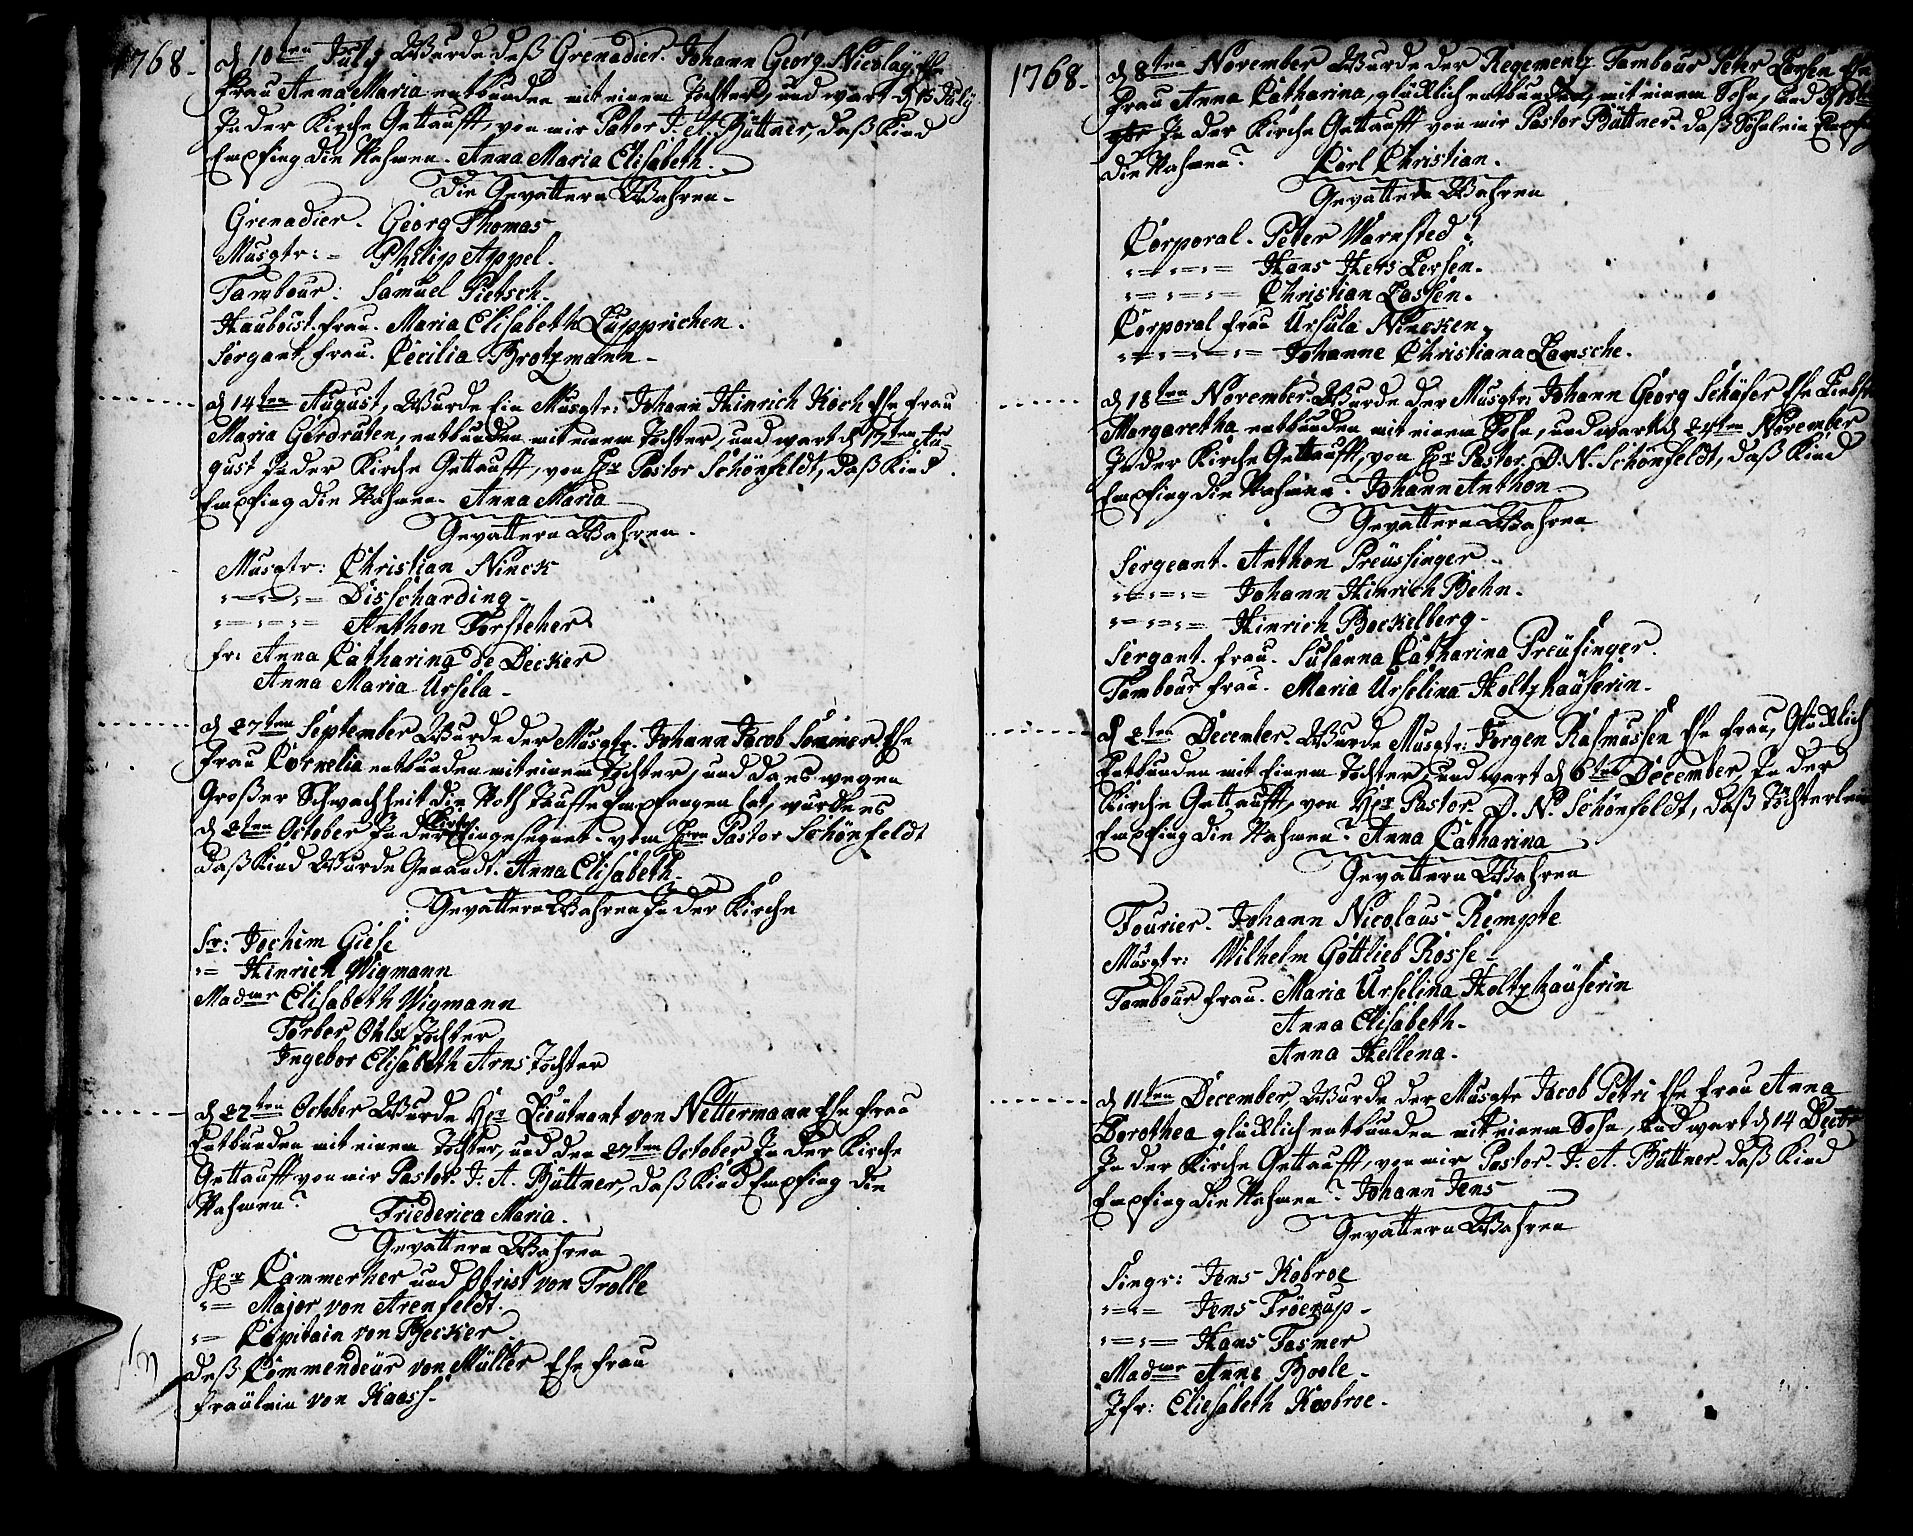 1768.
d 10ten July Wurde deß Grenadier. Johann Georg Nicolaÿ Ehe
Frau Anna Maria entbunden mit einem Tochter, und wart d 13 July
In der Kirche Gettaufft, von mir Pastor J. A. Büttner, daß Kind
Empfing die Nahmen. Anna Maria Elisabeth.
Die Gevattern Wahren.
Grenadier. Georg Thomas
Musqtr: = Philip Appel.
Tambour: Samuel Pietsch.
Hauboist. frau. Maria Elisabeth Lupprichen.
Sergant, frau. Cecilia Brotzmann.
d 14ten August, Wurde Ein Musqtr: Johann Hinrich Koch Ehe frau
Maria Gerdruten, entbunden mit einem Tochter, und wart d 17ten Au-
gust In der Kirche Gettaufft, von Hr Pastor Schönfeldt, daß Kind
Empfing die Nahmen. Anna Maria
Gevattern Wahren.
Musqtr: Christian Ninck
"="="= Disscharding.
"="="= Anthon Forsteher
fr: Anna Catharina de Decker
Anna Maria Ursela.
d 27ten September Wurde der Musqtr. Johann Jacob Sommer Ehe
Frau Cornelia entbunden mit einem Tochter, und da es wegen
Großer Schwachheit die Noth Tauffe Empfangen hat, wurde es
d 2ten October In der Kirche Eingesegnet. vom Hrn Pastor Schönfeldt
daß Kind Wurde Genandt. Anna Elisabeth.
Gevattern Wahren In der Kirche
Sr: Jochim Giese
"= Hinrich Wigmann
Madme Elisabeth Wigmann
Torber Ohls Tochter
Ingebor Elisabeth Arns Tochter
d 22ten October Wurde Hr Lieutnant von Nettermann Ehe frau
Entbunden mit einem Tochter, und den 27ten October In der Kirche
Gettaufft von mir Pastor. J. A. Büttner, daß Kind Empfing die
Nahmen?
Friederica Maria.
Gevattern Wahren
Hr Cammerher und Obrist von Trolle
"= Major von Arenfeldt.
"= Capitain von Becker
deß Commendeür von Müller Ehe frau
Fräulein von Kaass.
1768.
d 8ten November Wurde der Regementz Tambour Peter Larsen Ehe
Frau Anna Catharina, glücklich entbunden, mit einem Sohn, und
In der Kirche Gettaufft von mir Pastor Büttner. daß Söhnlein Empfing
die Nahmen? Carl Christian.
Gevattern Wahren
Corporal. Peter Warnsted?
"="="= Hans Hers Lersen.
"="="= Christian Lassen.
Corporal frau Ursula Nincken
"="="="= Johanne Christiana Larsche.
d 18ten November Wurde der Musqtr: Johann Georg Schäfer Ehe Liebste
Margaretha entbunden mit einem Sohn, und wart d 24ten November
In der Kirche Gettaufft, von Hr Pastor. D. N. Schönfeldt, daß Kind
Empfing die Nahmen? Johann Anthon
Gevattern Wahren
Sergeant. Anthon Preüssinger
"="="= Johann Hinrich Behn.
"="="= Hinrich Bockelberg.
Sergant. frau. Susanna Catharina Preüsinger.
Tambour frau. Maria Urselina Holtzhaüserin.
d 2ten December. Wurde Musqtr: Jörgen Rasmussen Ehe frau, Glücklich
Entbunden mit Einem Tochter, und wart d 6ten December, In der
Kirche Gettaufft, von Hr Pastor D. N. Schönfeldt, daß Töchterlein
Empfing die Nahmen? Anna Catharina
Gevattern Wahren
Fourier. Johann Nicolaus Rempte
Musqtr: Wilhelm Gottlieb Rosse.
Tambour frau. Maria Urselina Holtzhäuserin
Anna Elisabeth.
Anna Hellena.
d 11ten December, Wurde der Musqtr Jacob Petri Ehe frau Anna
Dorothea glücklich entbunden mit einem Sohn, und wart d 14 Decbr
In der Kirche Gettaufft, von mir Pastor. J. A. Büttner daß Kind
Empfing die Nahmen? Johann Jens
Gevattern Wahren
Singr: Jens Kobroe
"="= Jens Tröerup.
"="= Hans Tasmer
Madme Anne Boole.
Jfr: Eliesabeth Koobroe.